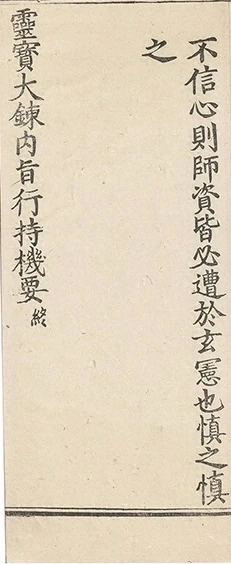 不信心則師資皆必遭於玄憲也慎之慎
之
靈寳大鍊内旨行持機要終